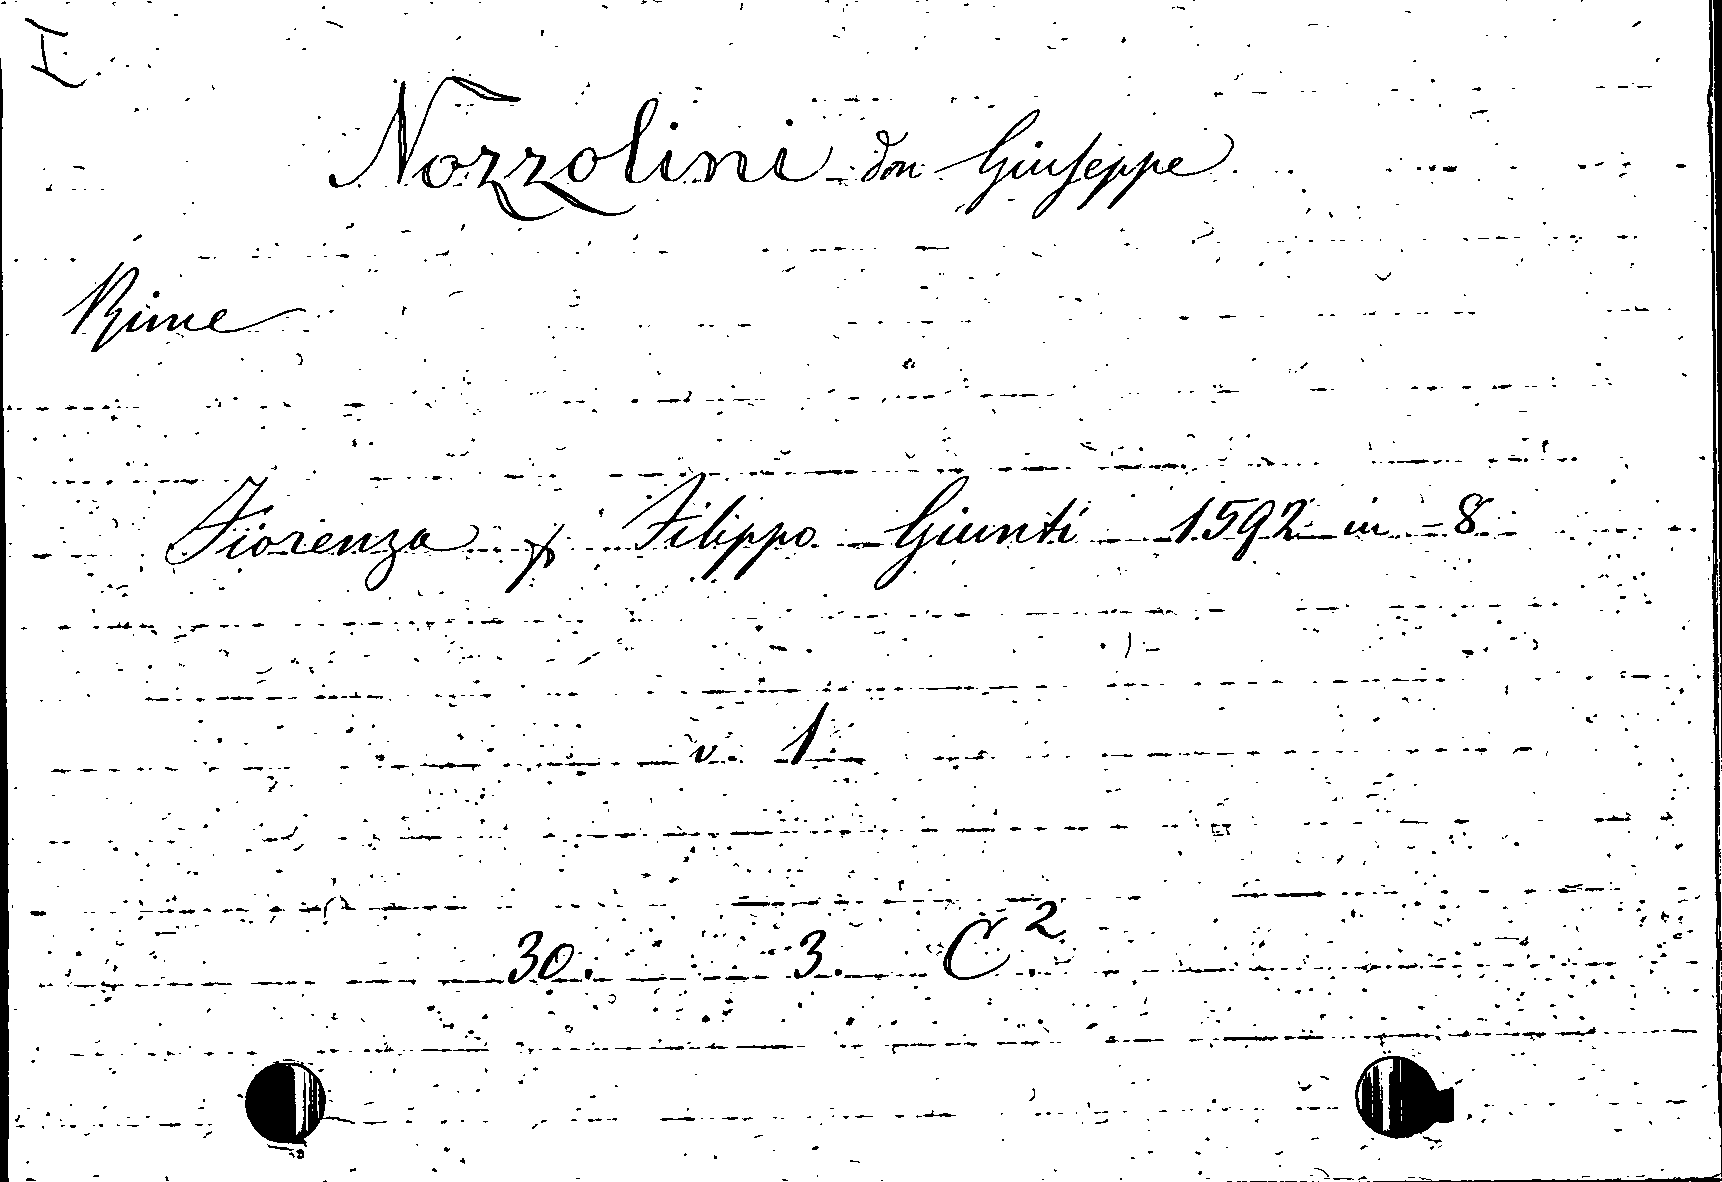 Nozzolini don Giuseppe
Rime
Fiorenza p Filippo Giunti 1592 in 8
v. 1.
30. 3. C 2.